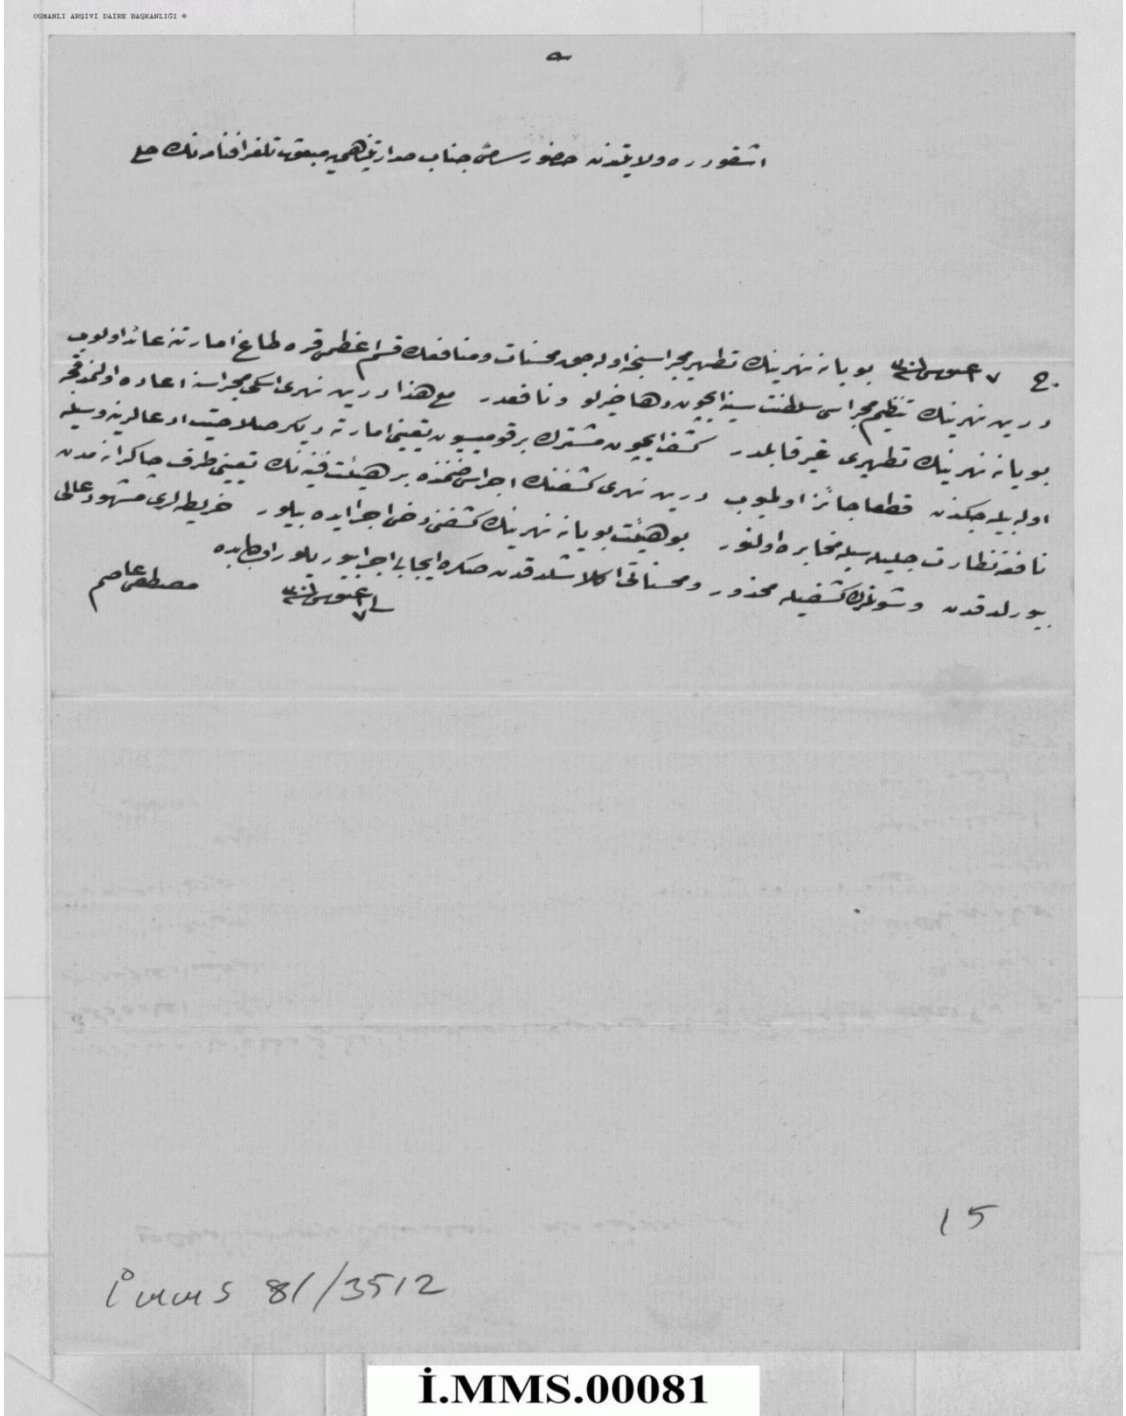 OSMANLI ARŞİVİ DAİRE BAŞKANLIĞI ©
اشقودره ولايتندن حضور سامئ جناب صدارتپناهی‌يه مبعوث تلغرافنامه‌نك حلی
ج ٧ اغستوس بويانه نهرينك تطهير مجراسنجه اوله‌جق محسنات ومنافعك قسم اعظمی قره طاغ امارتنه عائد اولوب
درين نهرينك تنظيم مجراسی سلطنت سنيه ايچون دها خيرلو ونافعدر مع هذا درين نهری اسكی مجراسنه اعاده اولنمدقجه
بويانه نهرينك تطهيری غير قابلدر كشف ايچون مشترك بر قوميسيون تعيينی امارته ديكر صلاحيت ادعالرينه وسيله
اوله‌بيله‌جكدن قطعا جائز اوليوب درين نهری كشفنك اجراسی ضمننده بر هيئت فنيه‌نك تعيينی طرف چاكرانه‌مدن
نافعه نظارت جليله‌سيله مخابره اولنور بو هيئت بويانه نهرينك كشفنی دخی اجرا ايده‌بيلور خريطه‌لری مشهود عالی
بيورلدقدن وشو نهرك كشفيله محذور ومحسناتی اكلاشلدقدن صكره ايجابی اجرا بيوريلور اولبابده
فی ٧ اغستوس
مصطفی عاصم
15
İ MMS 81/3512
İ.MMS.00081